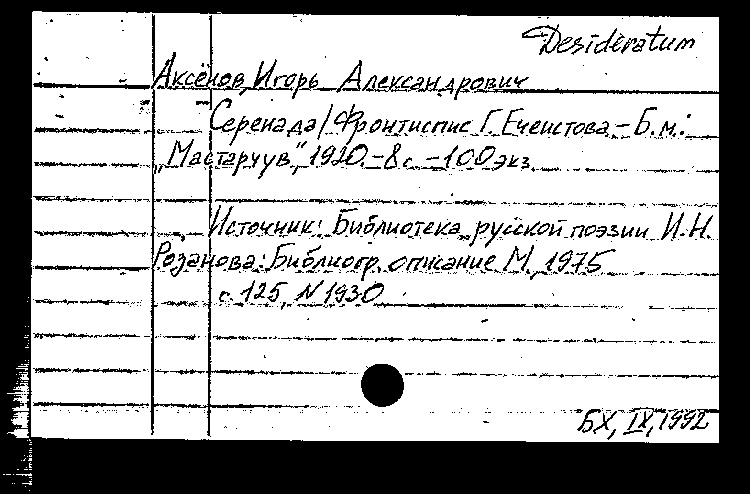 Desideratum
Аксёнов, Игорь Александрович
Серенада / Фронтиспис Г. Ечеистова. – Б.м.:
„Мастарчув", 1920. – 8 с. – 100 экз.
Источник: Библиотека русской поэзии И.Н.
Розанова: Библиогр. описание М., 1975
с. 125, N 1930
БХ, IX, 1992